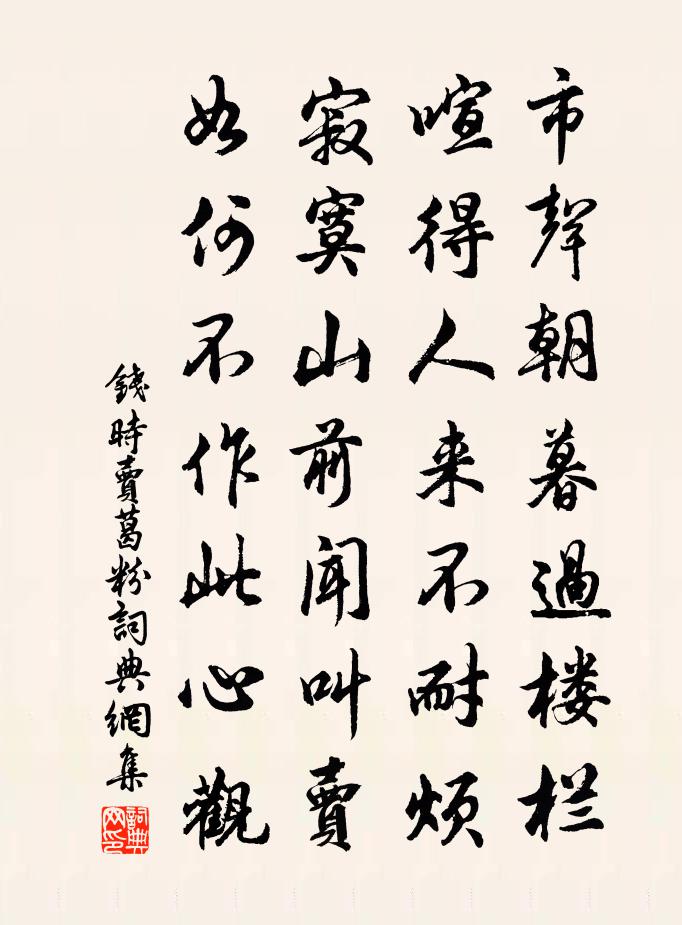 市聲朝暮過楼栏
喧得人来不耐煩
寂寞山前聞叫賣
如何不作此心觀
錢時賣葛粉詞典網集
詞典网印